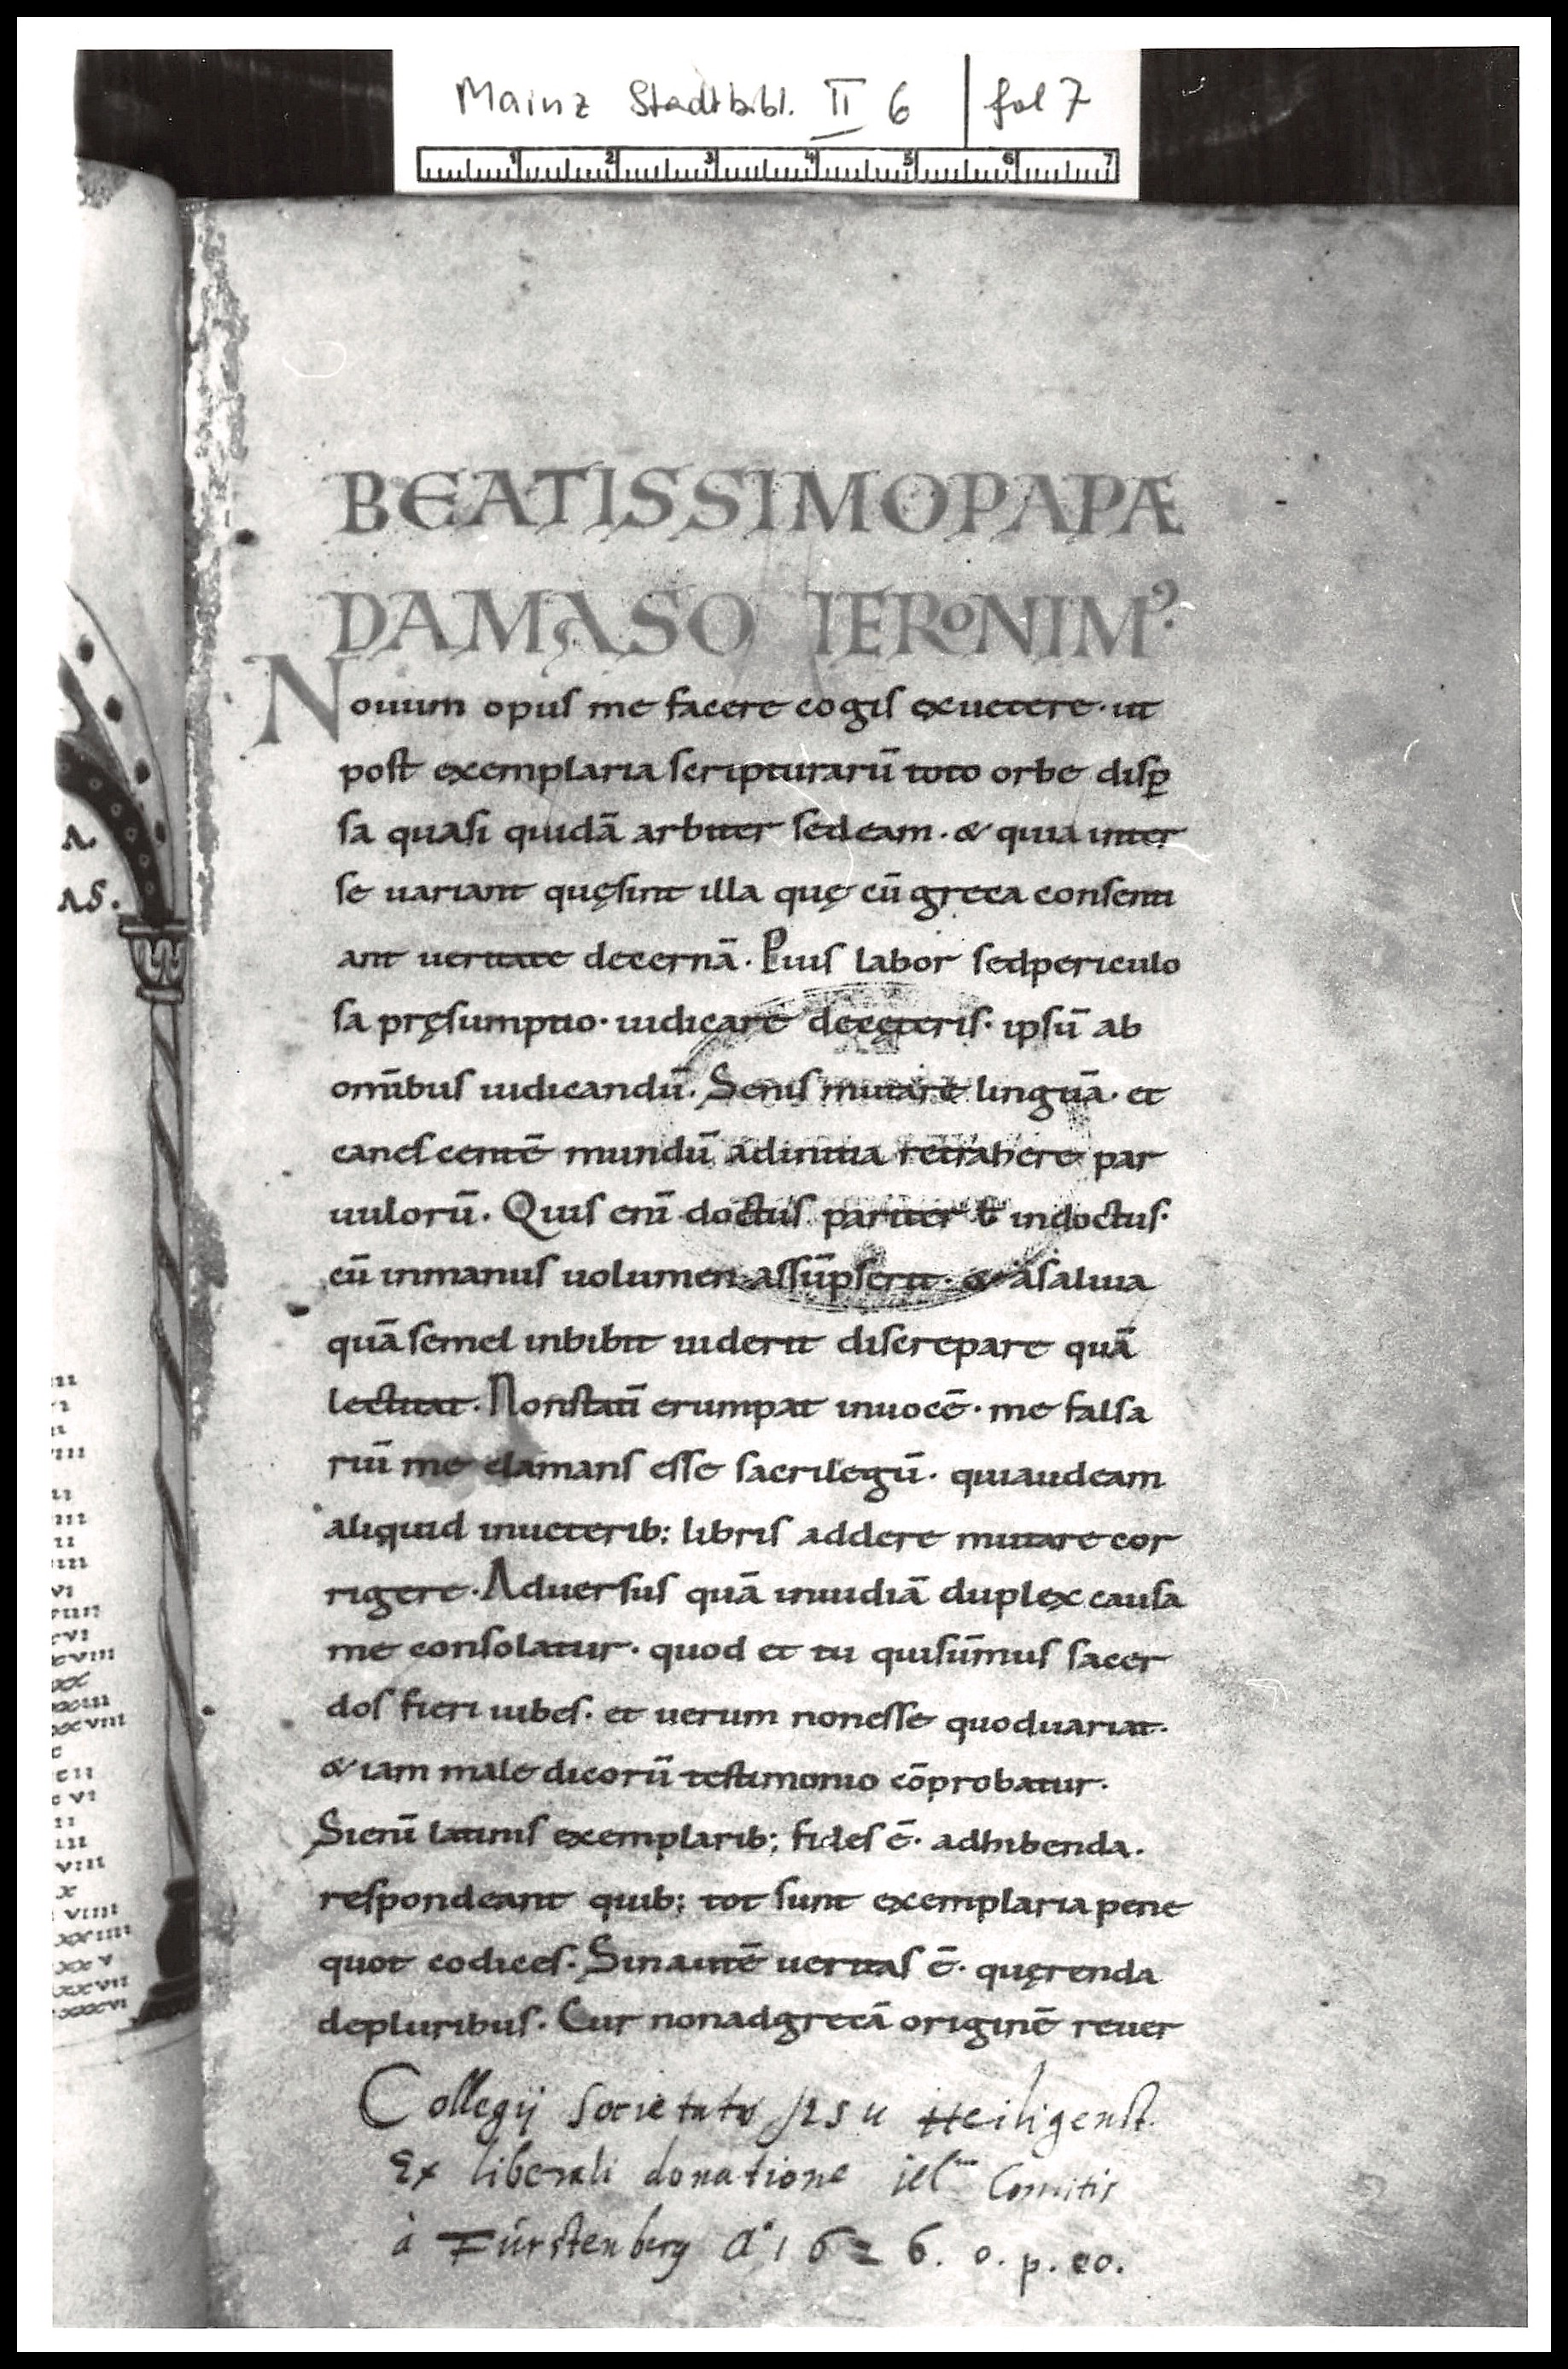 Mainz Stadtbibl. II 6 | fol 7
1 2 3 4 5 6 7
BEATISSIMO PAPÆ
DAMASO IERONIMꝰ.
Nouum opus me facere cogis exuetere · ut
post exemplaria scripturarū toto orbe disꝑ
sa quasi quidā arbiter sedeam · & quia inter
se uariant quęsint illa quę cū greca consenti
ant ueritate decernā · Pius labor sed periculo
sa pręsumptio · iudicare decęteris · ipsū ab
omībus iudicandū · Senis mutare linguā · et
canescentē mundū adinitia retrahere par
uulorū · Quis enī doctus pariter ł indoctus ·
cū inmanus uolumen assūpserit · & asaliua
quā semel inbibit uiderit discrepare quā
lectitat · Nonstatī erumpat inuocē · me falsa
riū me clamans esse sacrilegū · quiaudeam
aliquid inueterib; libris addere mutare cor
rigere · Aduersus quā inuidiā duplex causa
me consolatur · quod et tu quisūmus sacer
dos fieri iubes · et uerum nonesse quoduariat ·
& iam maledicorū testimonio cōprobatur ·
Sienī latinis exemplarib; fides ē · adhibenda ·
respondeant quib; tot sunt exemplaria pene
quot codices · Sinautē ueritas ē · quęrenda
depluribus · Cur nonadgrecā originē reuer
Collegij Societatis Jesu Heiligenst.
Ex liberali donatione Comitis
à Fürstenberg Aº 1626. o. p. eo.